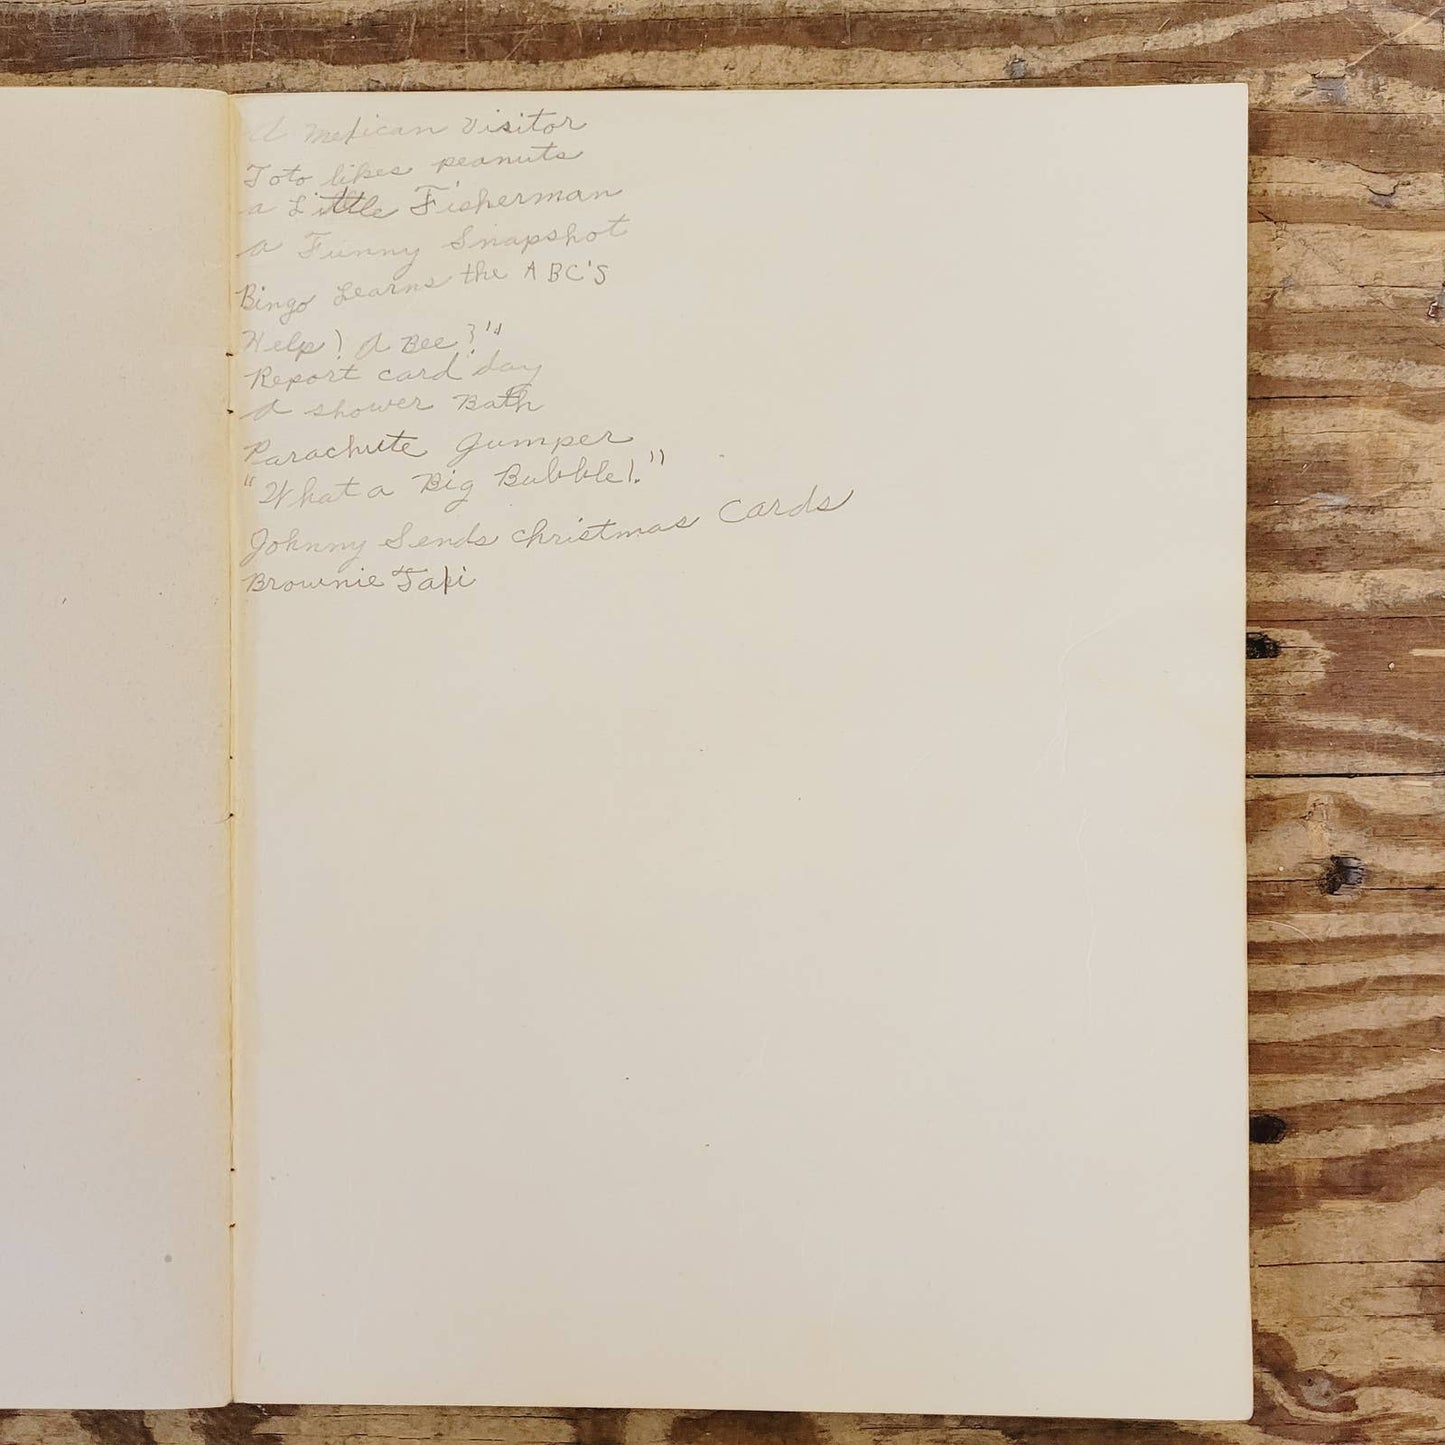 A Mexican Visitor
Toto likes peanuts
a Little Fisherman
a Funny Snapshot
Bingo Learns the ABC's
Help! A Bee!"
Report card day
A shower Bath
Parachute Jumper
"What a Big Bubble!"
Johnny Sends Christmas Cards
Brownie Taxi